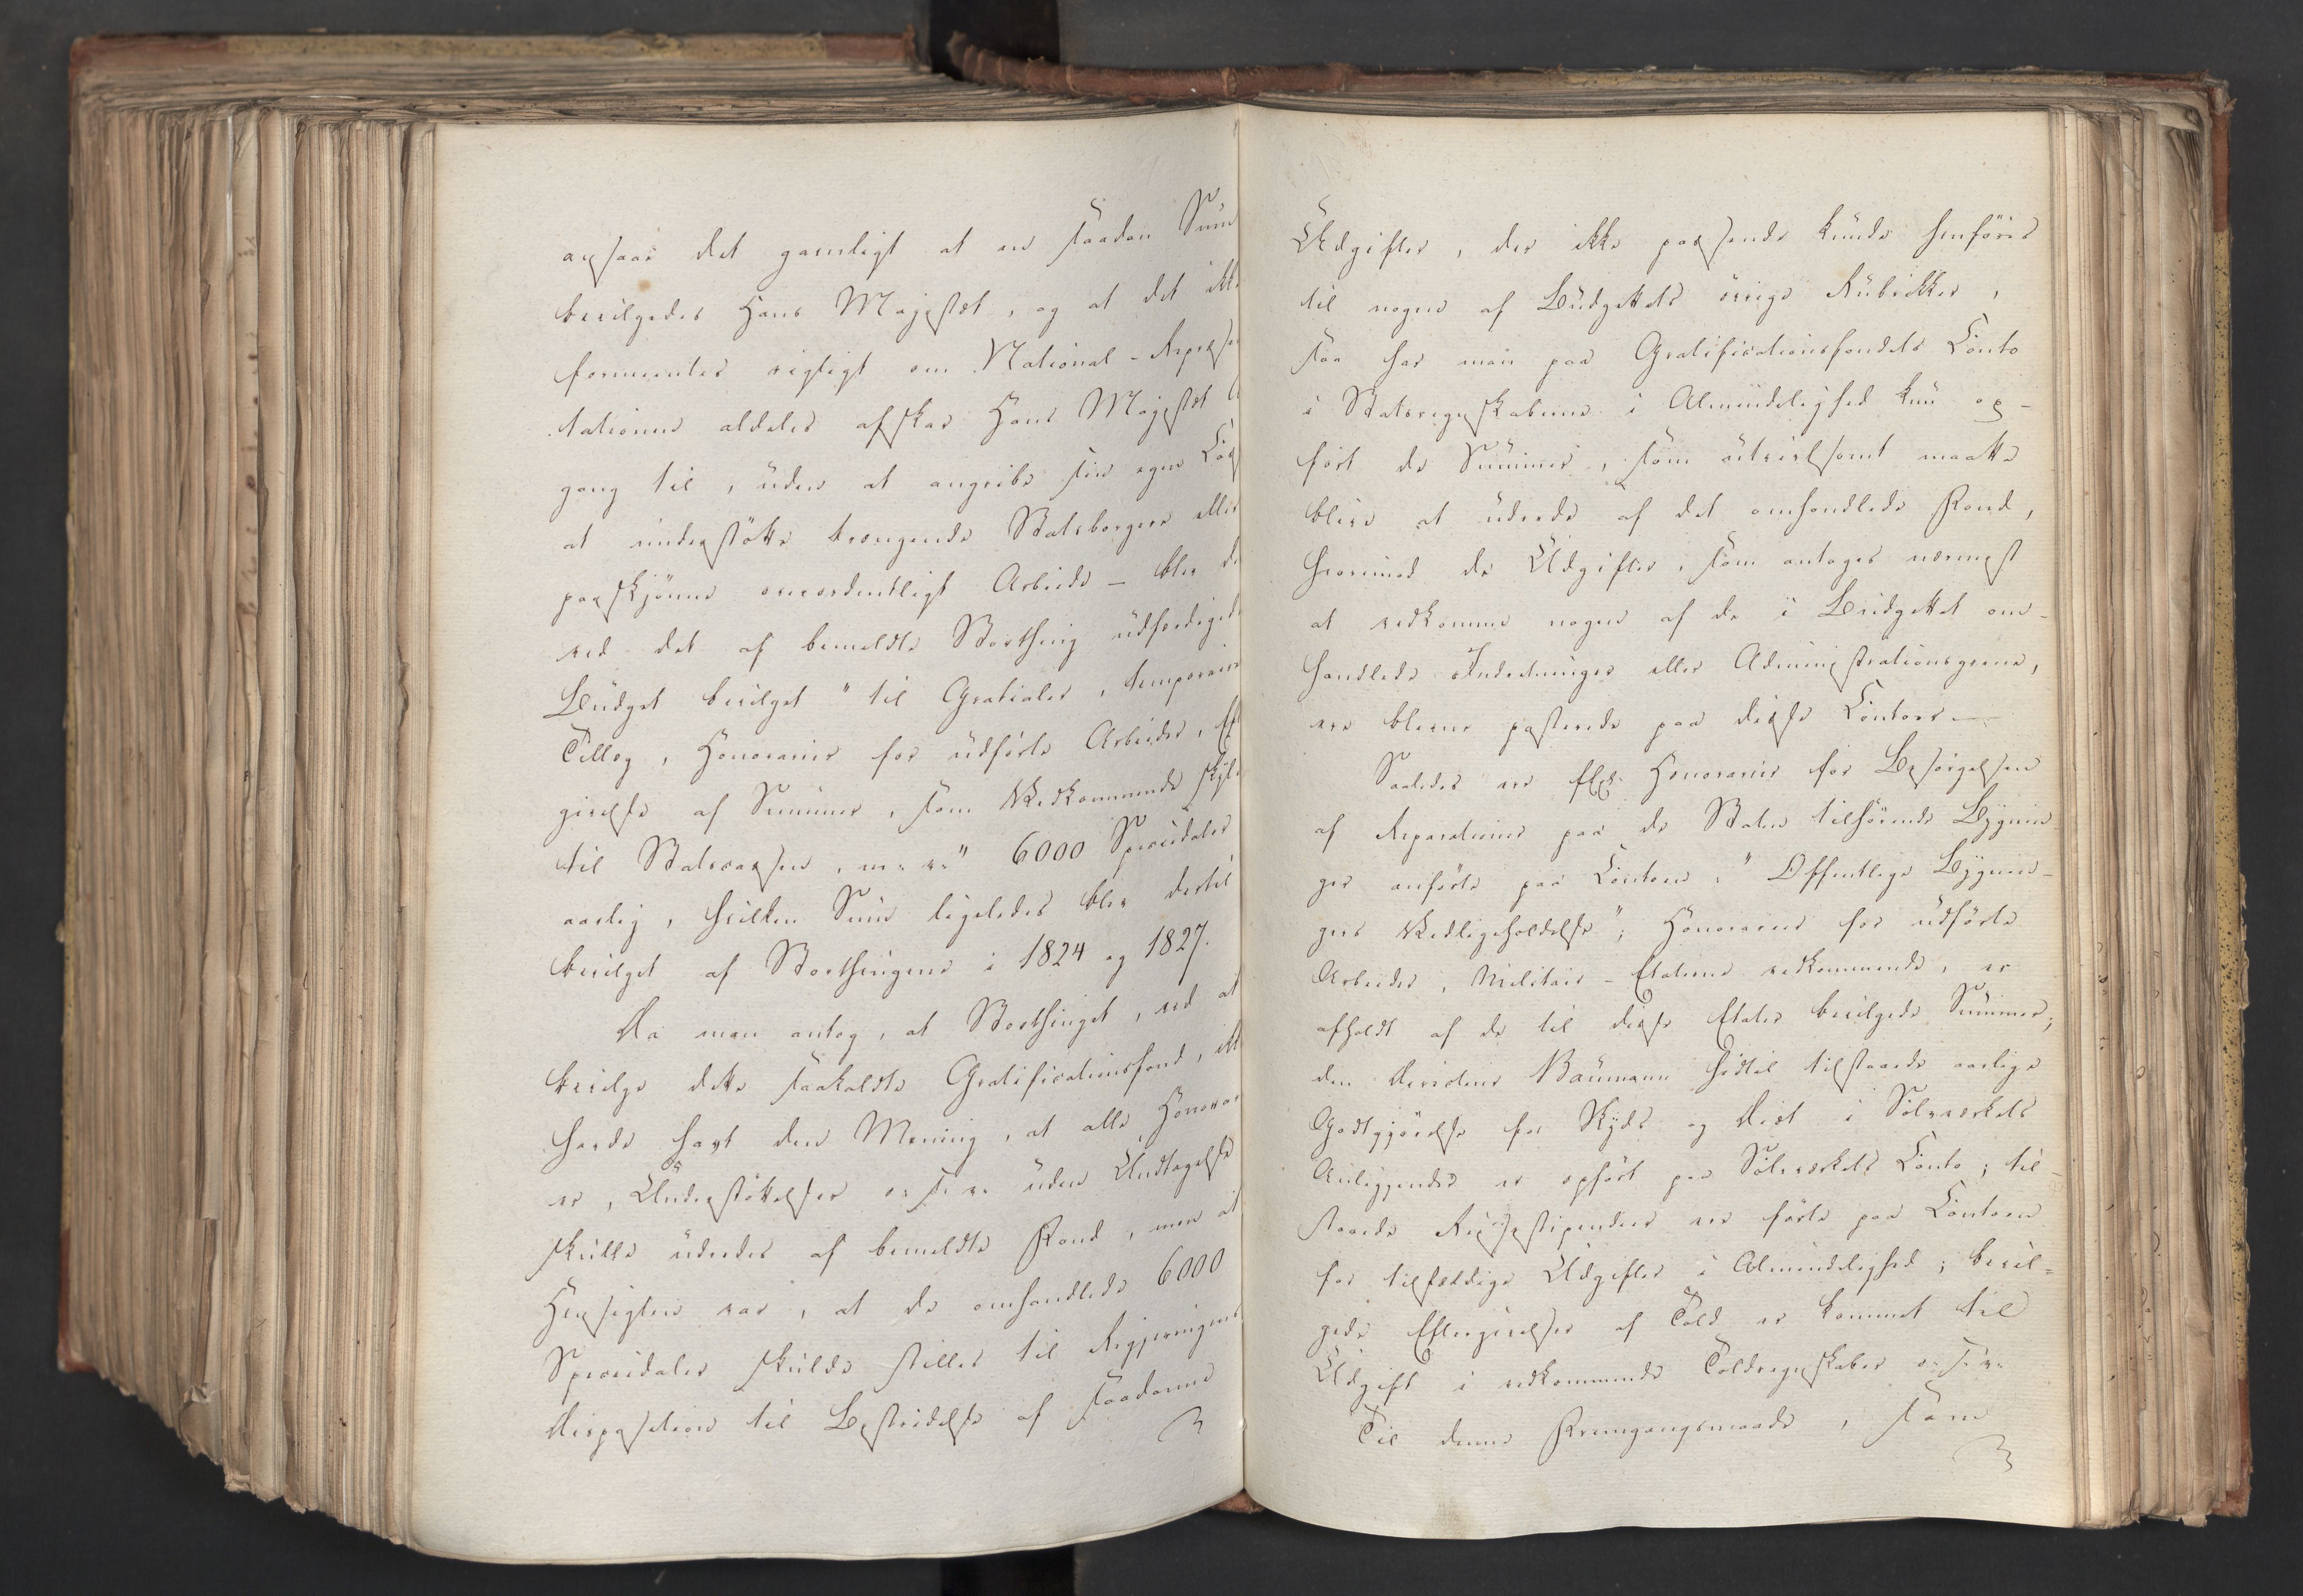 ansaae det gavnligt at en saadan Sum
bevilgedes Hans Majestæt, og at det ikke
formeentes rigtigt om National-Repræsen
tationen aldeles afskar Hans Majestæt A
gang til, uden at angribe sin egen Cas
at understøtte trængende Statsborgere eller
paaskjønne overordentligt Arbeide – blev de
ved det af bemeldte Storthing udfærdigede
Budget bevilget "til Gratialer, temporaire
Tillæg, Honorarier for udførte Arbeider, Ef
givelse af Summer, som Vedkommende skyld
til Statscassen, m: v:" 6000 Speciedaler
aarlig, hvilken Sum ligeledes blev dertil
bevilget af Storthingene i 1824 og 1827.
Da man antog, at Storthinget, ved at
bevilge dette saakaldte Gratificationsfond, ikke
havde havt den Mening, at alle Honorari
er, Understøttelser o: s: v: uden Undtagelse
skulle udredes af bemeldte Fond, men at
Hensigten var, at de omhandlede 6000
Speciedaler skulde stilles til Regjeringens
Disposition til Bestridelse af saadanne
Udgifter, der ikke passende kunde henføres
til nogen af Budgettets øvrige Rubrikker,
saa har man paa Gratificationsfondets Conto
i Statsregnskaberne i Almindelighed kun op-
ført de Summer, som utvivlsomt maatte
blive at udrede af det omhandlede Fond,
hvorimod de Udgifter, som antoges nærmest
at vedkomme nogen af de i Budgettet om-
handlede Indretninger eller Administrationsgrene,
ere blevne posterede paa disse Contoer. –
Saaledes ere f Ex: Honorarier for Besørgelsen
af Reparationer paa de Staten tilhørende Bygnin-
ger anførte paa Contoen: "Offentlige Bygnin-
gers Vedligeholdelse"; Honorarier for udførte
Arbeider, Militair-Etaterne vedkommende, er
afholdt af de til disse Etater bevilgede Summer;
den Revident Baumann hidtil tilstaaede aarlige
Godtgjørelse for Skyds og Diæt i Sølvværkets
Anliggender er opført paa Sølvværkets Conto; til-
staaede Reisestipendier ere førte paa Contoen
for tilfældige Udgifter i Almindelighed; bevil-
gede Eftergivelser af Told er kommet til
Udgift i vedkommende Toldregnskaber o: s: v:
Til denne Fremgangsmaade, som